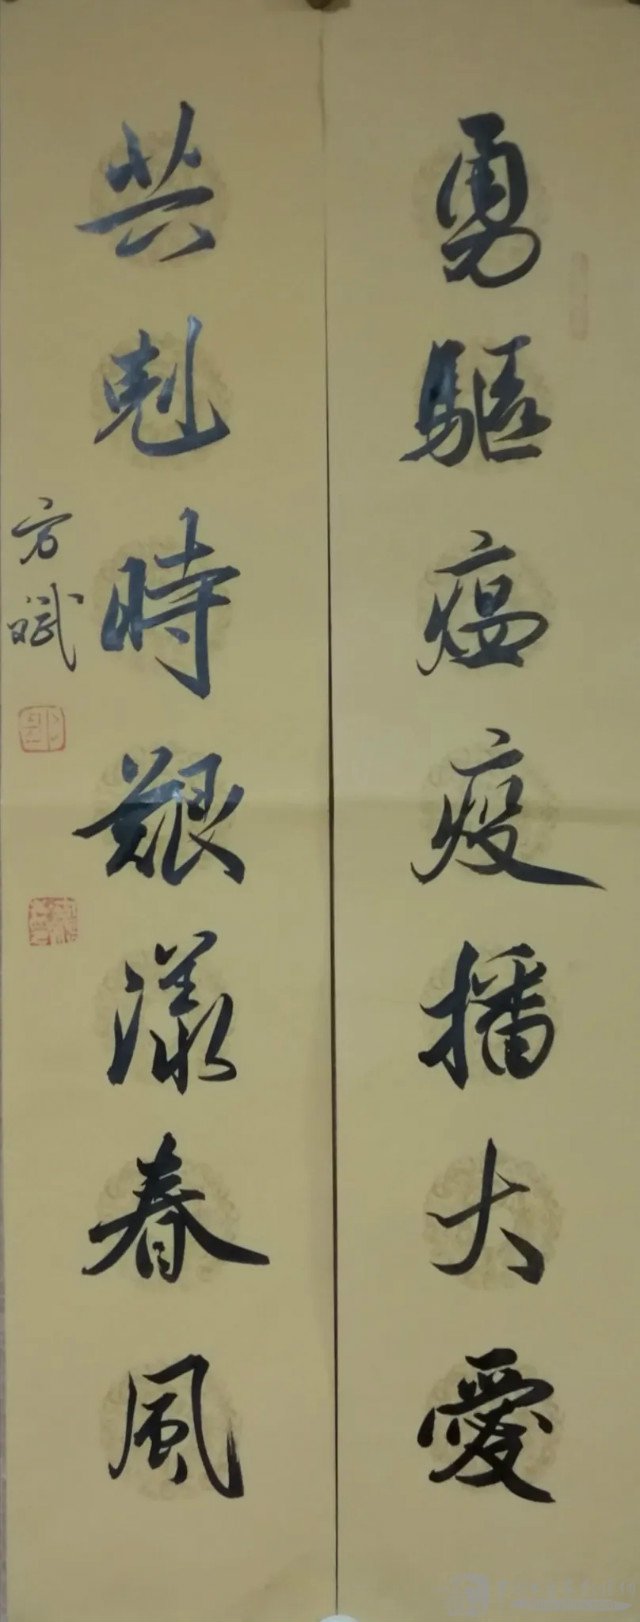 勇驅瘟疫播大愛
共剋時艱漾春風
方斌